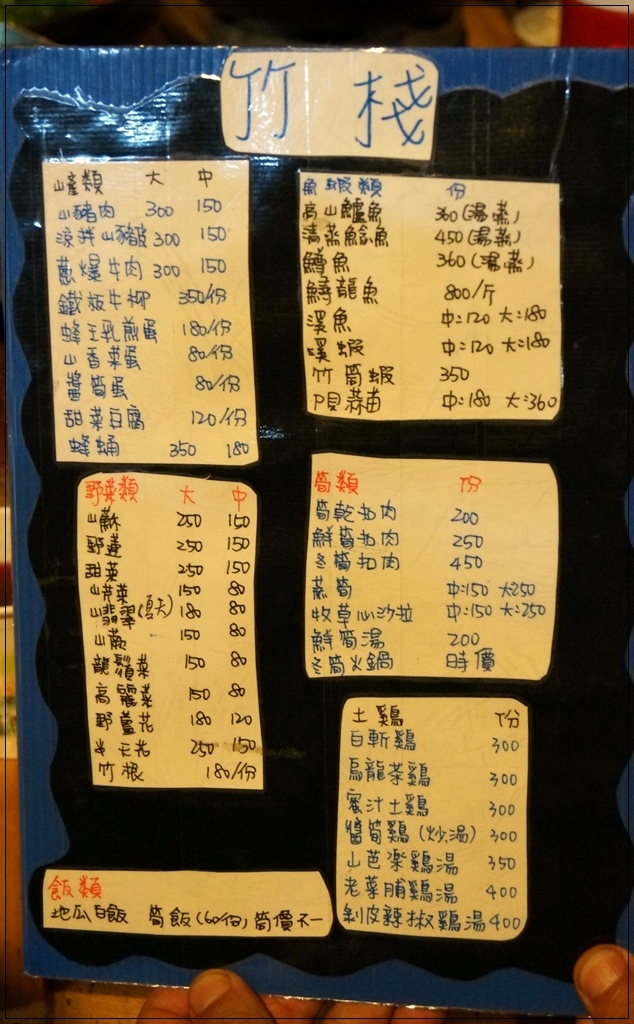 竹 栈
山產類 大 中
山豬肉 300 150
涼拌山豬皮 300 150
蔥爆牛肉 300 150
鐵板牛柳 350/份
蜂王乳煎蛋 180/份
山香菜蛋 80/份
醬筍蛋 80/份
甜菜豆腐 120/份
蜂蛹 350 180
魚蝦類 份
高山鱸魚 360(湯.蒸)
清蒸鯰魚 450(湯.蒸)
鱒魚 360(湯.蒸)
鱘龍魚 800/斤
溪魚 中:120 大:180
溪蝦 中:120 大:180
竹筒蝦 350
中:180 大:360
野菜類 大 中
山蘇 250 150
野蓮 250 150
甜菜 250 150
山芹菜 150 80
山翡翠(夏天) 180 80
山蕨 150 80
龍鬚菜 150 80
高麗菜 150 80
野薑花 180 120
半天花 250 150
竹根 180/份
筍類 份
筍乾扣肉 200
鮮筍扣肉 250
冬筍扣肉 450
蒸筍 中:150 大250
牧草心沙拉 中:150 大:250
鮮筍湯 200
冬筍火鍋 時價
土鷄 份
白斬鷄 300
烏龍茶鷄 300
蜜汁土鷄 300
醬筍鷄(炒.湯) 300
山芭楽鷄湯 350
老菜脯鷄湯 400
剝皮辣椒鷄湯 400
飯類
地瓜白飯 筍飯(60/份) 筍價不一